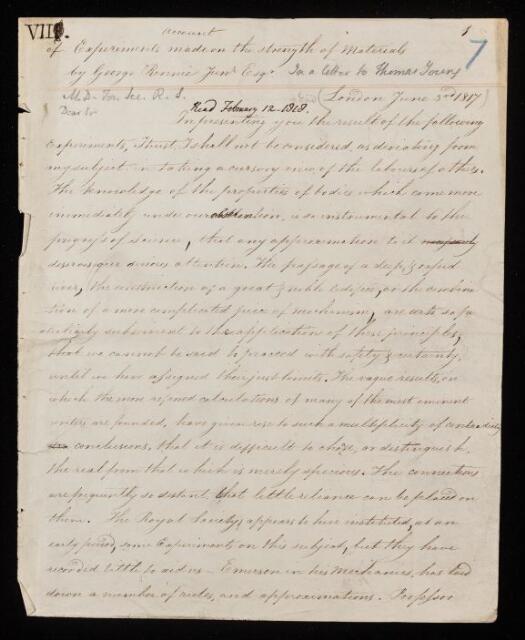 VIII.
account
of Experiments made on the strength of Materials 7
by George Rennie Junr Esqr In a letter to Thomas Young
M.D. For. Sec. R. S. London June 3rd 1817
Dear Sir Read February 12 - 1818.
In presenting you the result of the following
experiments, I trust, I shall not be considered, as deviating from
my subject in taking a cursory view of the labours of others.
The knowledge of the properties of bodies which come more
immediately under our observation, is so instrumental to the
progress of science, that any approximation to it
deserves our serious attention. The passage of a deep, & rapid
river, the construction of a great & noble edifice, or the combina
tion of a more complicated piece of mechanism, are arts so pe
culiarly subservient to the application of these principles,
that we cannot be said to proceed with safety & certainty,
until we have assigned their just limits. The vague results, on
which the more refined calculations of many of the most eminent
writers are founded, have given rise to such a multiplicity of contradictory
conclusions, that it is difficult to chose, or distinguish
the real from that which is merely specious. The connections
are frequently so distant, that little reliance can be placed on
them. The Royal Society, appears to have instituted, at an
early period, some Experiments on this subject, but they have
recorded little to aid us - Emerson in his Mechanics, has laid
down a number of rules, and approximations. Professor